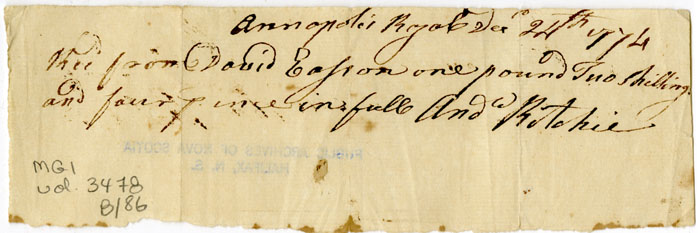 Annapolis Royal Decr 24th 1774
Recd from David Easson one pound Two shillings
and four pence in full And.w Ritchie
PUBLIC ARCHIVES OF NOVA SCOTIA
HALIFAX, N. S.
MG1
vol. 3478
B/86